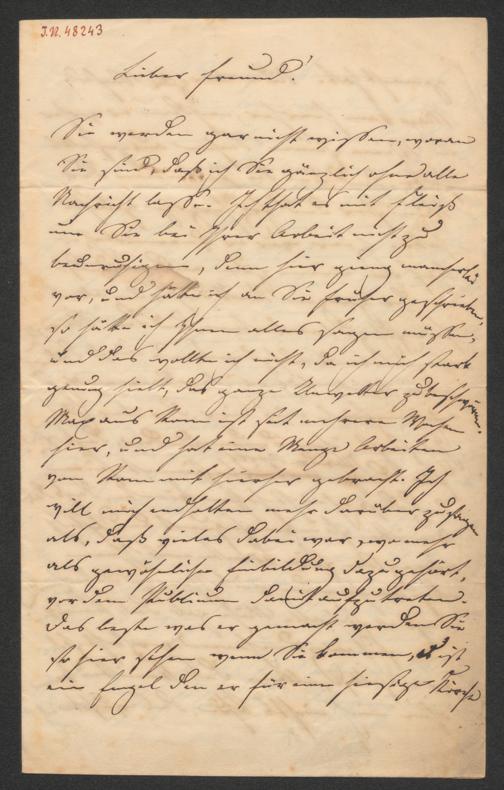 J.N. 48243
Lieber Freund!
Sie werden gar nicht wissen, woran
Sie sind, daß ich Sie gänzlich ohne alle
Nachricht lasse. Ich that es mit Fleiß
um Sie bei Ihrer Arbeit nicht zu
beunruhigen, denn hier gieng mancherlei
vor, und hätte ich an Sie früher geschrieben,
so hätte ich Ihnen alles sagen müssen,
und das wollte ich nicht, da ich mich stark
genug hielt, das ganze Unwetter zu beschwören.
Max aus Rom ist seit mehrere Wochen
hier, und hat eine Menge Arbeiten
von Rom mit hierher gebracht. Ich
will mich enthalten mehr darüber zu sagen
als, daß vieles dabei war, wo mehr
als gewöhnliche Einbildung dazu gehört,
vor dem Publicum damit aufzutreten.
Das beste was er gemacht werden Sie
so hier sehen wenn Sie kommen, es ist
ein Engel den er für eine hiesige Kirche